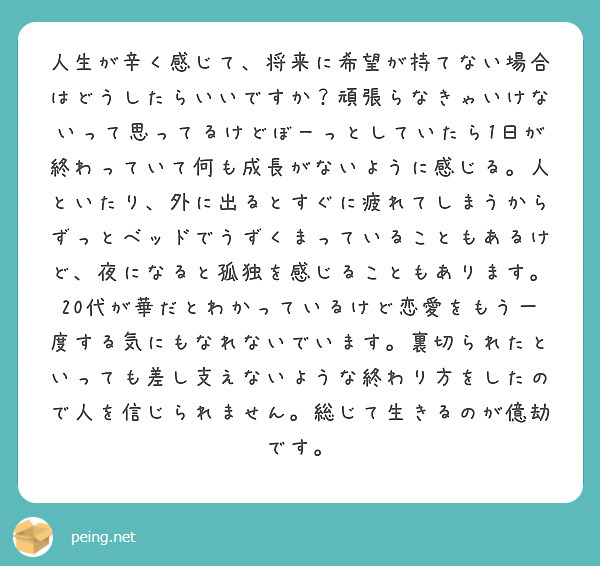 人生が辛く感じて、将来に希望が持てない場合
はどうしたらいいですか？頑張らなきゃいけな
いって思ってるけどぼーっとしていたら1日が
終わっていて何も成長がないように感じる。人
といたり、外に出るとすぐに疲れてしまうから
ずっとベッドでうずくまっていることもあるけ
ど、夜になると孤独を感じることもあります。
20代が華だとわかっているけど恋愛をもう一
度する気にもなれないでいます。裏切られたと
いっても差し支えないような終わり方をしたの
で人を信じられません。総じて生きるのが億劫
です。
peing.net